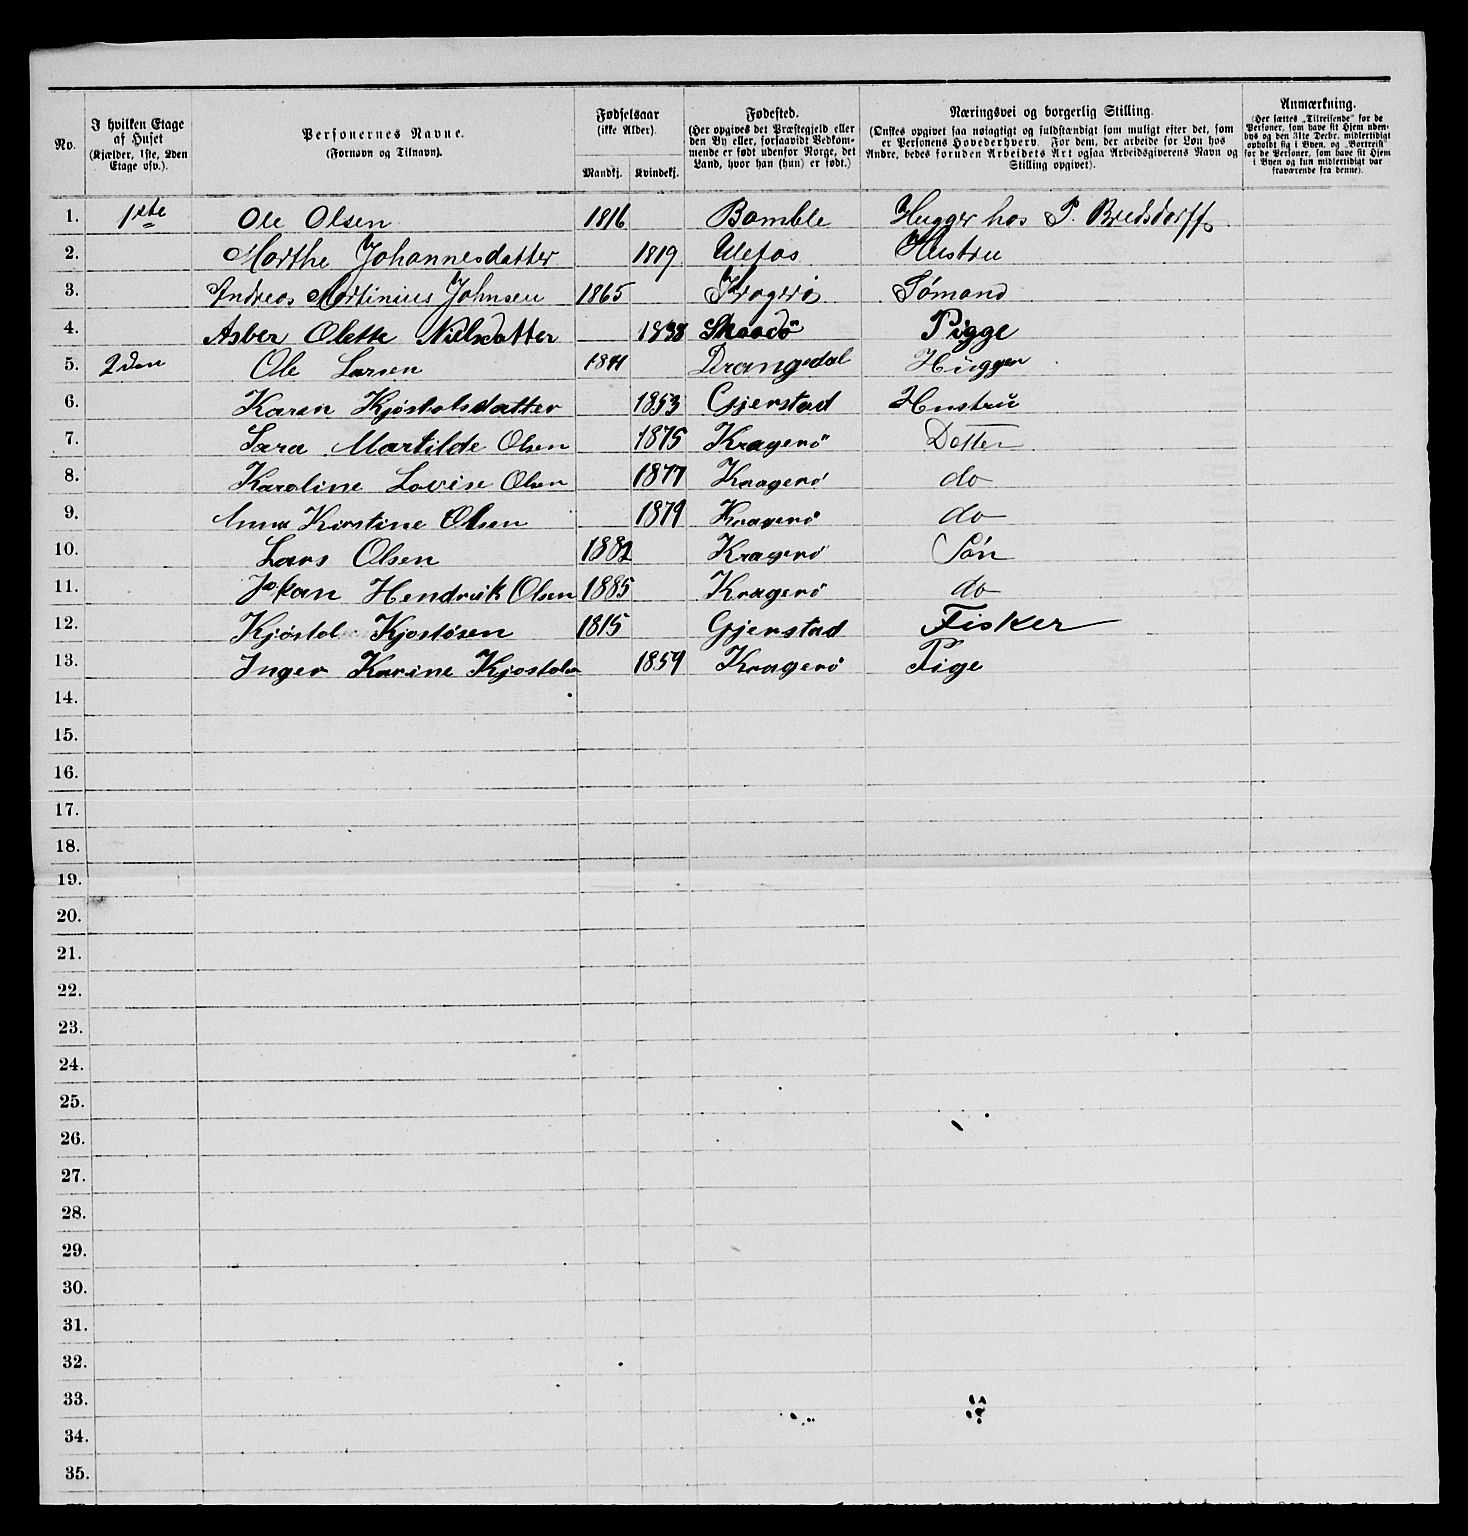 No.
I hvilken Etage af Huset (Kjælder, 1ste, 2den Etage osv.).
Personernes Navne. (Fornavn og Tilnavn).
Fødselsaar (ikke Alder).
Mandkj. Kvindekj.
Fødested. (Her opgives det Præstegjeld eller den By eller, forsaavidt Vedkommende er født udenfor Norge, det Land, hvor han (hun) er født.)
Næringsvei og borgerlig Stilling. (Ønskes opgivet saa nøiagtigt og fuldstændigt som muligt efter det, som er Personens Hovederhverv. For dem, der arbeide for Løn hos Andre, bedes foruden Arbeidets Art ogsaa Arbeidsgiverens Navn og Stilling opgivet).
Anmærkning. (Her sættes „Tilreisende“ for de Personer, som have sit Hjem udenbys og den 31te Decbr. midlertidigt opholdt sig i Byen, og „Bortreist“ for de Personer, som have sit Hjem i Byen og kun midlertidigt var fraværende fra denne).
1. 1ste Ole Olsen 1816 Bamble Hugger hos P. Bredsdorff
2. Marthe Johannesdatter 1819 Ulefos Hustru
3. Andreas Martinius Johnsen 1865 Kragerø Sømand
4. Asber Olette Nielsdatter 1838 Skaadö Pigge
5. 2den Ole Larsen 18 Drangedal Huggen
6. Karen Kjøstolsdatter 1853 Gjerstad Hustru
7. Sara Martilde Olsen 1875 Kragerö Datter
8. Karoline Lovise Olsen 1877 Kragerø do
9. Anna Kirstine Olsen 1879 Kragerø do
10. Lars Olsen 1882 Kragerø Søn
11. Johan Hendrik Olsen 1885 Kragerø do
12. Kjøstol Kjostøsen 1815 Gjerstad Fisker
13. Inger Karine Kjostols 1859 Kragerø Pige
14.
15.
16.
17.
18.
19.
20.
21.
22.
23.
24.
25.
26.
27.
28.
29.
30.
31.
32.
33.
34.
35.